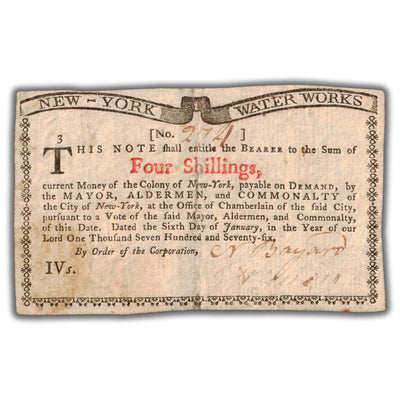 NEW-YORK WATER WORKS
3
[No. 274]
THIS NOTE shall entitle the BEARER to the Sum of
Four Shillings,
current Money of the Colony of New-York, payable on DEMAND, by
the MAYOR, ALDERMEN, and COMMONALTY of
the City of New-York, at the Office of Chamberlain of the said City,
pursuant to a Vote of the said Mayor, Aldermen, and Commonalty,
of this Date. Dated the Sixth Day of January, in the Year of our
Lord One Thousand Seven Hundred and Seventy-six,
By Order of the Corporation, N Bayard
IVs.